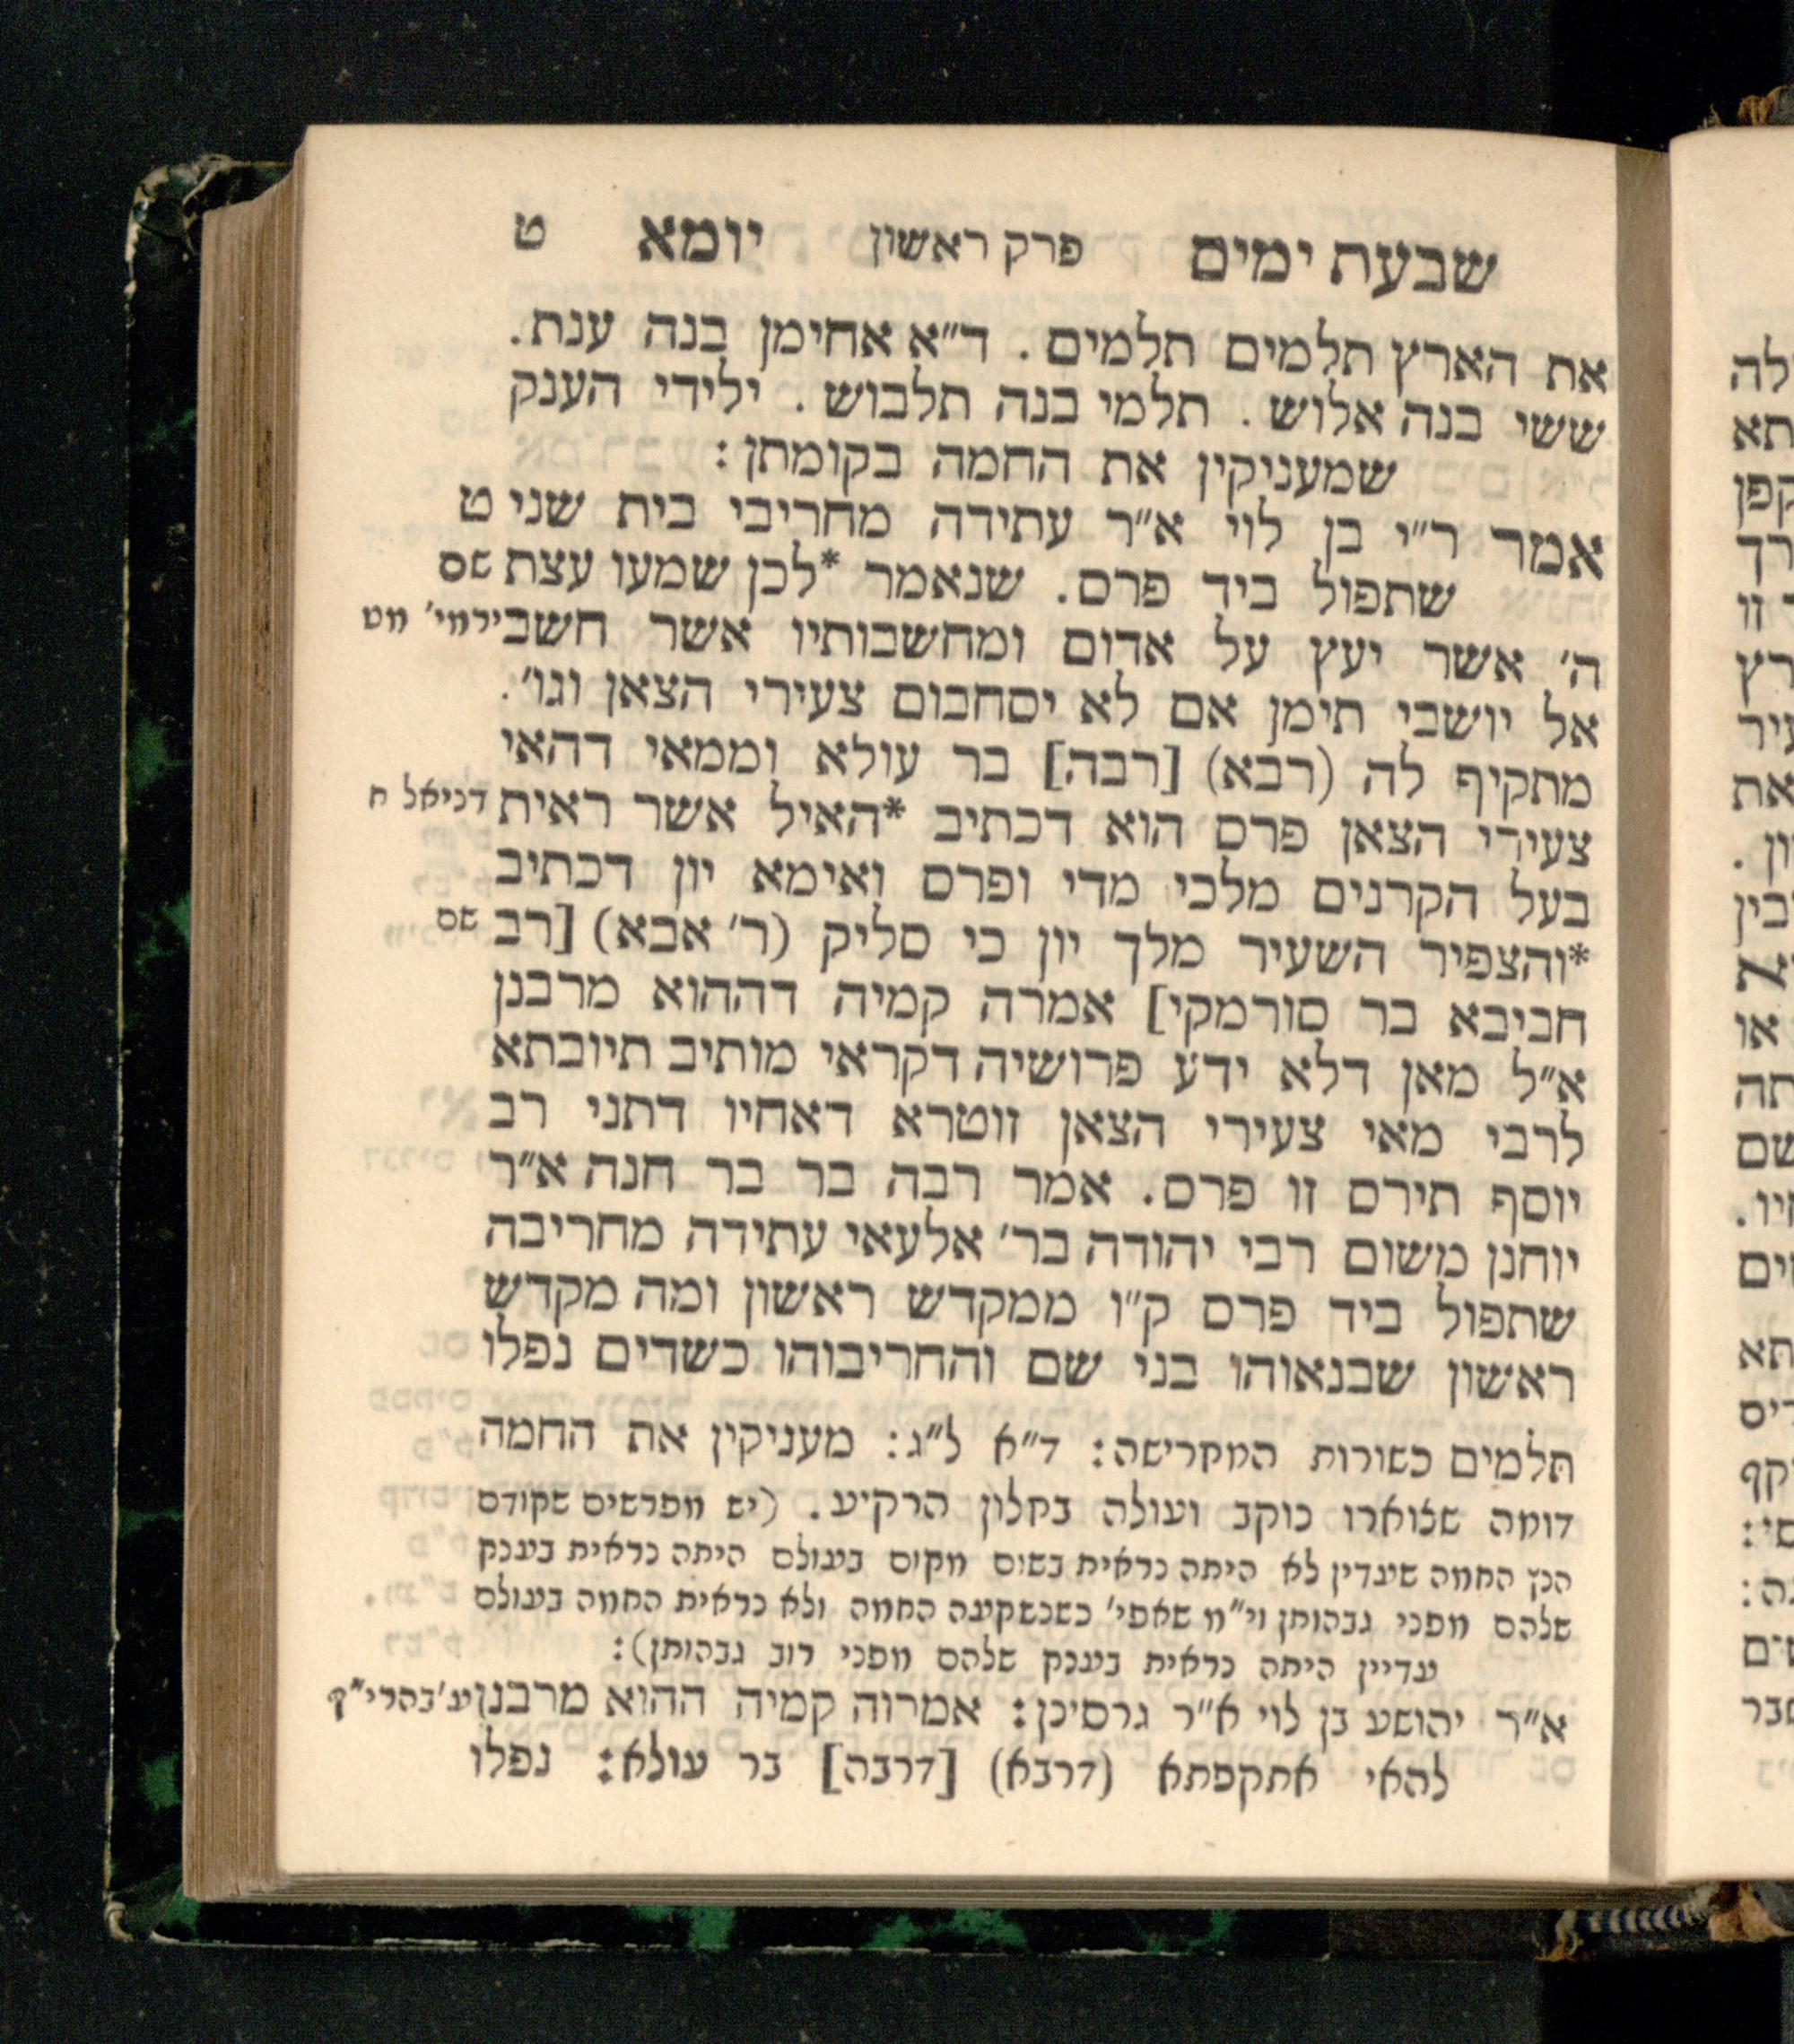 שבעת ימים פרק ראשון יומא ט
את הארץ תלמים תלמים. ד״א אחימן בנה ענת.
ששי בנה אלוש. תלמי בנה תלבוש. ילידי הענק
שמעניקין את החמה בקומתן:
אמר ר״י בן לוי א״ר עתידה מחריבי בית שני ט
שתפול ביד פרס. שנאמר *לכן שמעו עצת שם
ה׳ אשר יעץ על אדום ומחשבותיו אשר חשב ירמי׳ מט
אל יושבי תימן אם לא יסחבום צעירי הצאן וגו׳.
מתקיף לה (רבא) [רבה] בר עולא וממאי דהאי
צעירי הצאן פרס הוא דכתיב *האיל אשר ראית דניאל ח
בעל הקרנים מלכי מדי ופרס ואימא יון דכתיב
*והצפיר השעיר מלך יון כי סליק (ר׳ אבא) [רב שם
חביבא בר סורמקי] אמרה קמיה דההוא מרבנן
א״ל מאן דלא ידע פרושיה דקראי מותיב תיובתא
לרבי מאי צעירי הצאן זוטרא דאחיו דתני רב
יוסף תירס זו פרס. אמר רבה בר בר חנה א״ר
יוחנן משום רבי יהודה בר׳ אלעאי עתידה מחריבה
שתפול ביד פרס ק״ו ממקדש ראשון ומה מקדש
ראשון שבנאוהו בני שם והחריבוהו כשדים נפלו
תלמים כשורות המקרישה: ד״א ל״ג: מעניקין את החמה
דומה שצוארו נוקב ועולה בחלון הרקיע. (יש מפרשים שקודם
הנץ החמה שעדין לא היתה נראית בשום מקום בעולם היתה נראית בענק
שלהם מפני גבהותן וי״מ שאפי׳ כשנשקעה החמה ולא נראית החמה בעולם
עדיין היתה נראית בענק שלהם מפני רוב גבהותן):
א״ר יהושע בן לוי א״ר גרסינן: אמרוה קמיה ההוא מרבנן ע׳בהרי״ף
להאי אתקפתא (דרבא) [דרבה] בר עולא: נפלו